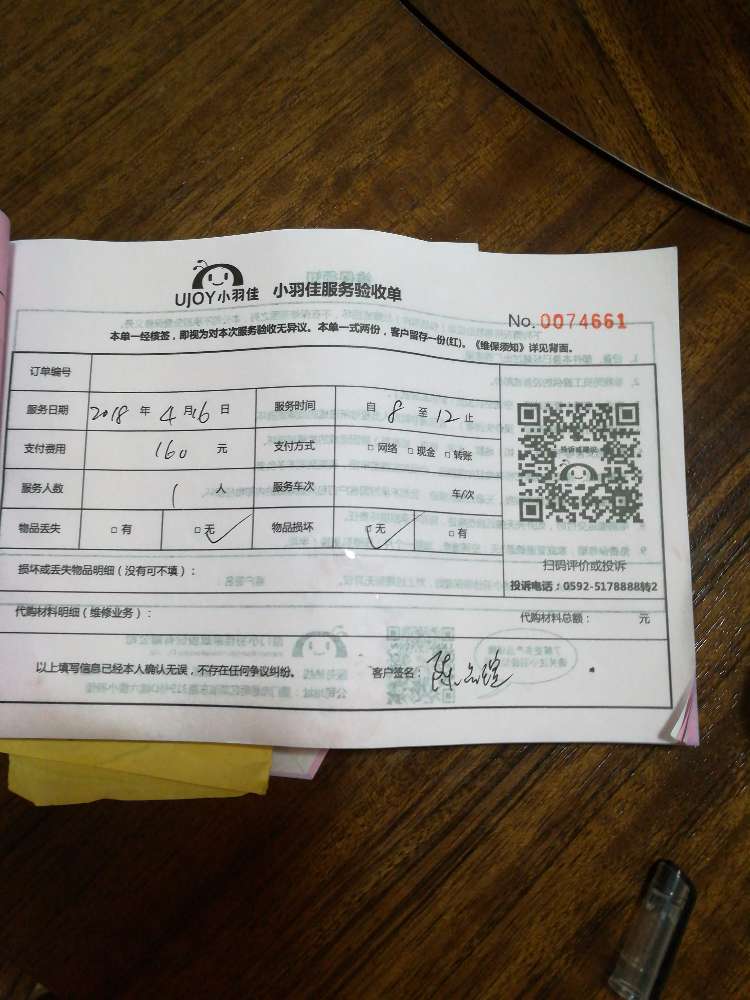 UJOY小羽佳 小羽佳服务验收单
No. 0074661
本单一经核签，即视为对本次服务验收无异议。本单一式两份，客户留存一份(红)。《维保须知》详见背面。
订单编号
服务日期 2018 年 4 月 16 日 服务时间 自 8 至 12 止
支付费用 160 元 支付方式 □ 网络 □ 现金 □ 转账
服务人数 1 人 服务车次 车/次
物品丢失 □ 有 □ 无 物品损坏 □ 无 □ 有
投诉或建议
扫码评价或投诉
投诉电话：0592-5178888转2
损坏或丢失物品明细（没有可不填）：
代购材料明细（维修业务）： 代购材料总额： 元
以上填写信息已经本人确认无误，不存在任何争议纠纷。 客户签名：陈